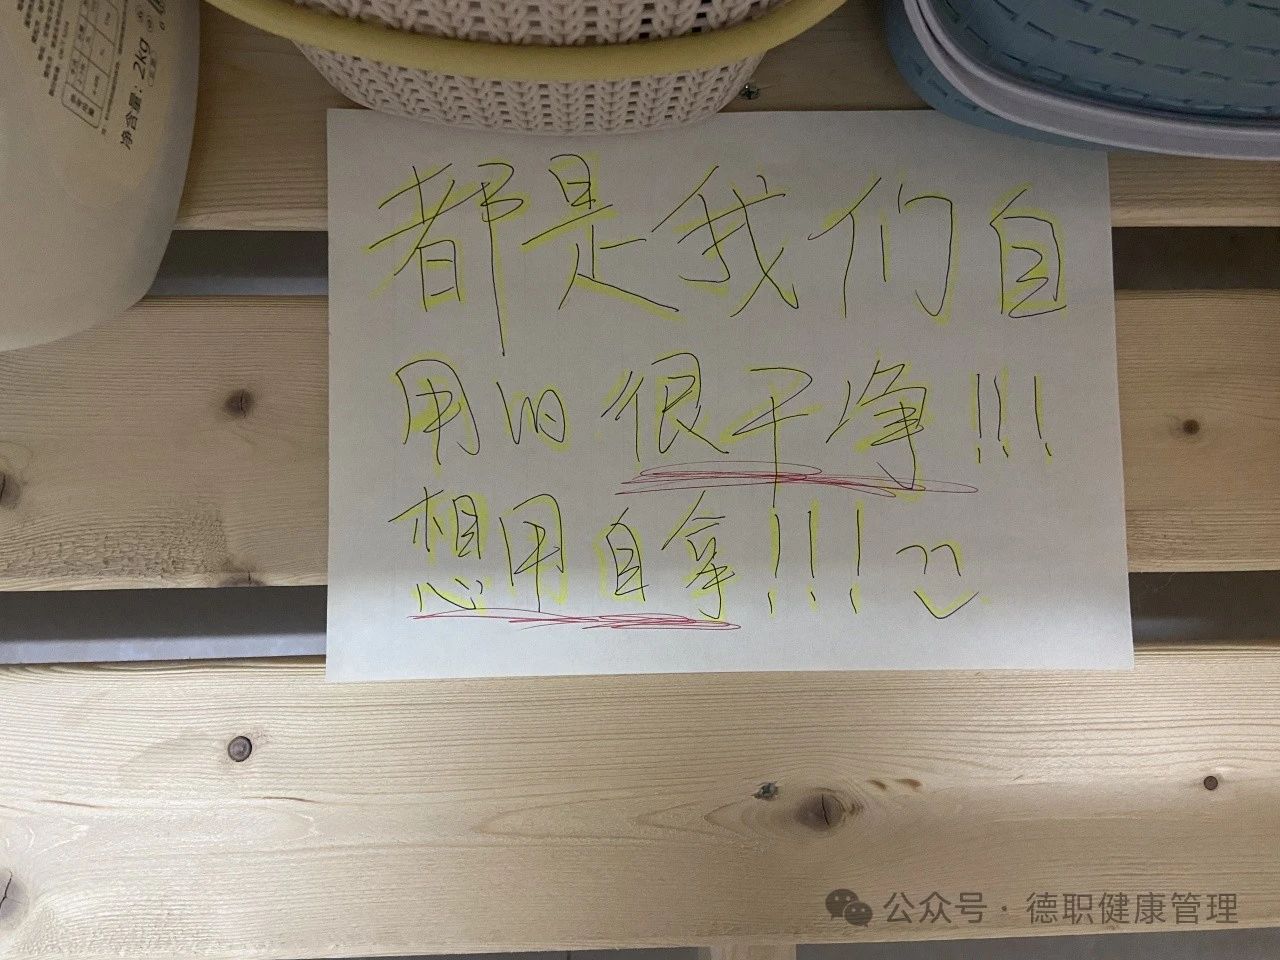 净含量：2kg
都是我们自
用的很干净!!!
想用自拿!!!
公众号·德职健康管理